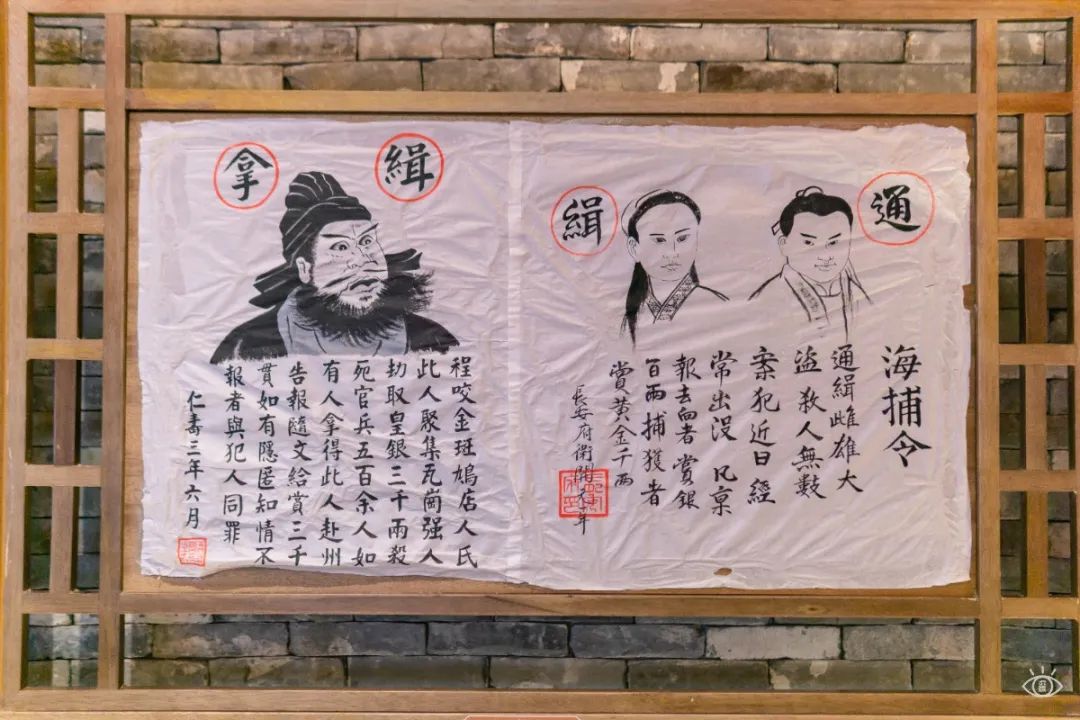 通 緝
海捕令
通緝雌雄大
盜殺人無數
案犯近日經
常出沒 凡禀
報去向者賞銀
百兩捕獲者
賞黃金千兩
長安府衙開元年
緝 拿
程咬金斑鳩店人氏
此人聚集瓦崗强人
劫取皇銀三千兩殺
死官兵五百余人如
有人拿得此人赴州
告報隨文給賞三千
貫如有隱匿知情不
報者與犯人同罪
仁壽三年六月